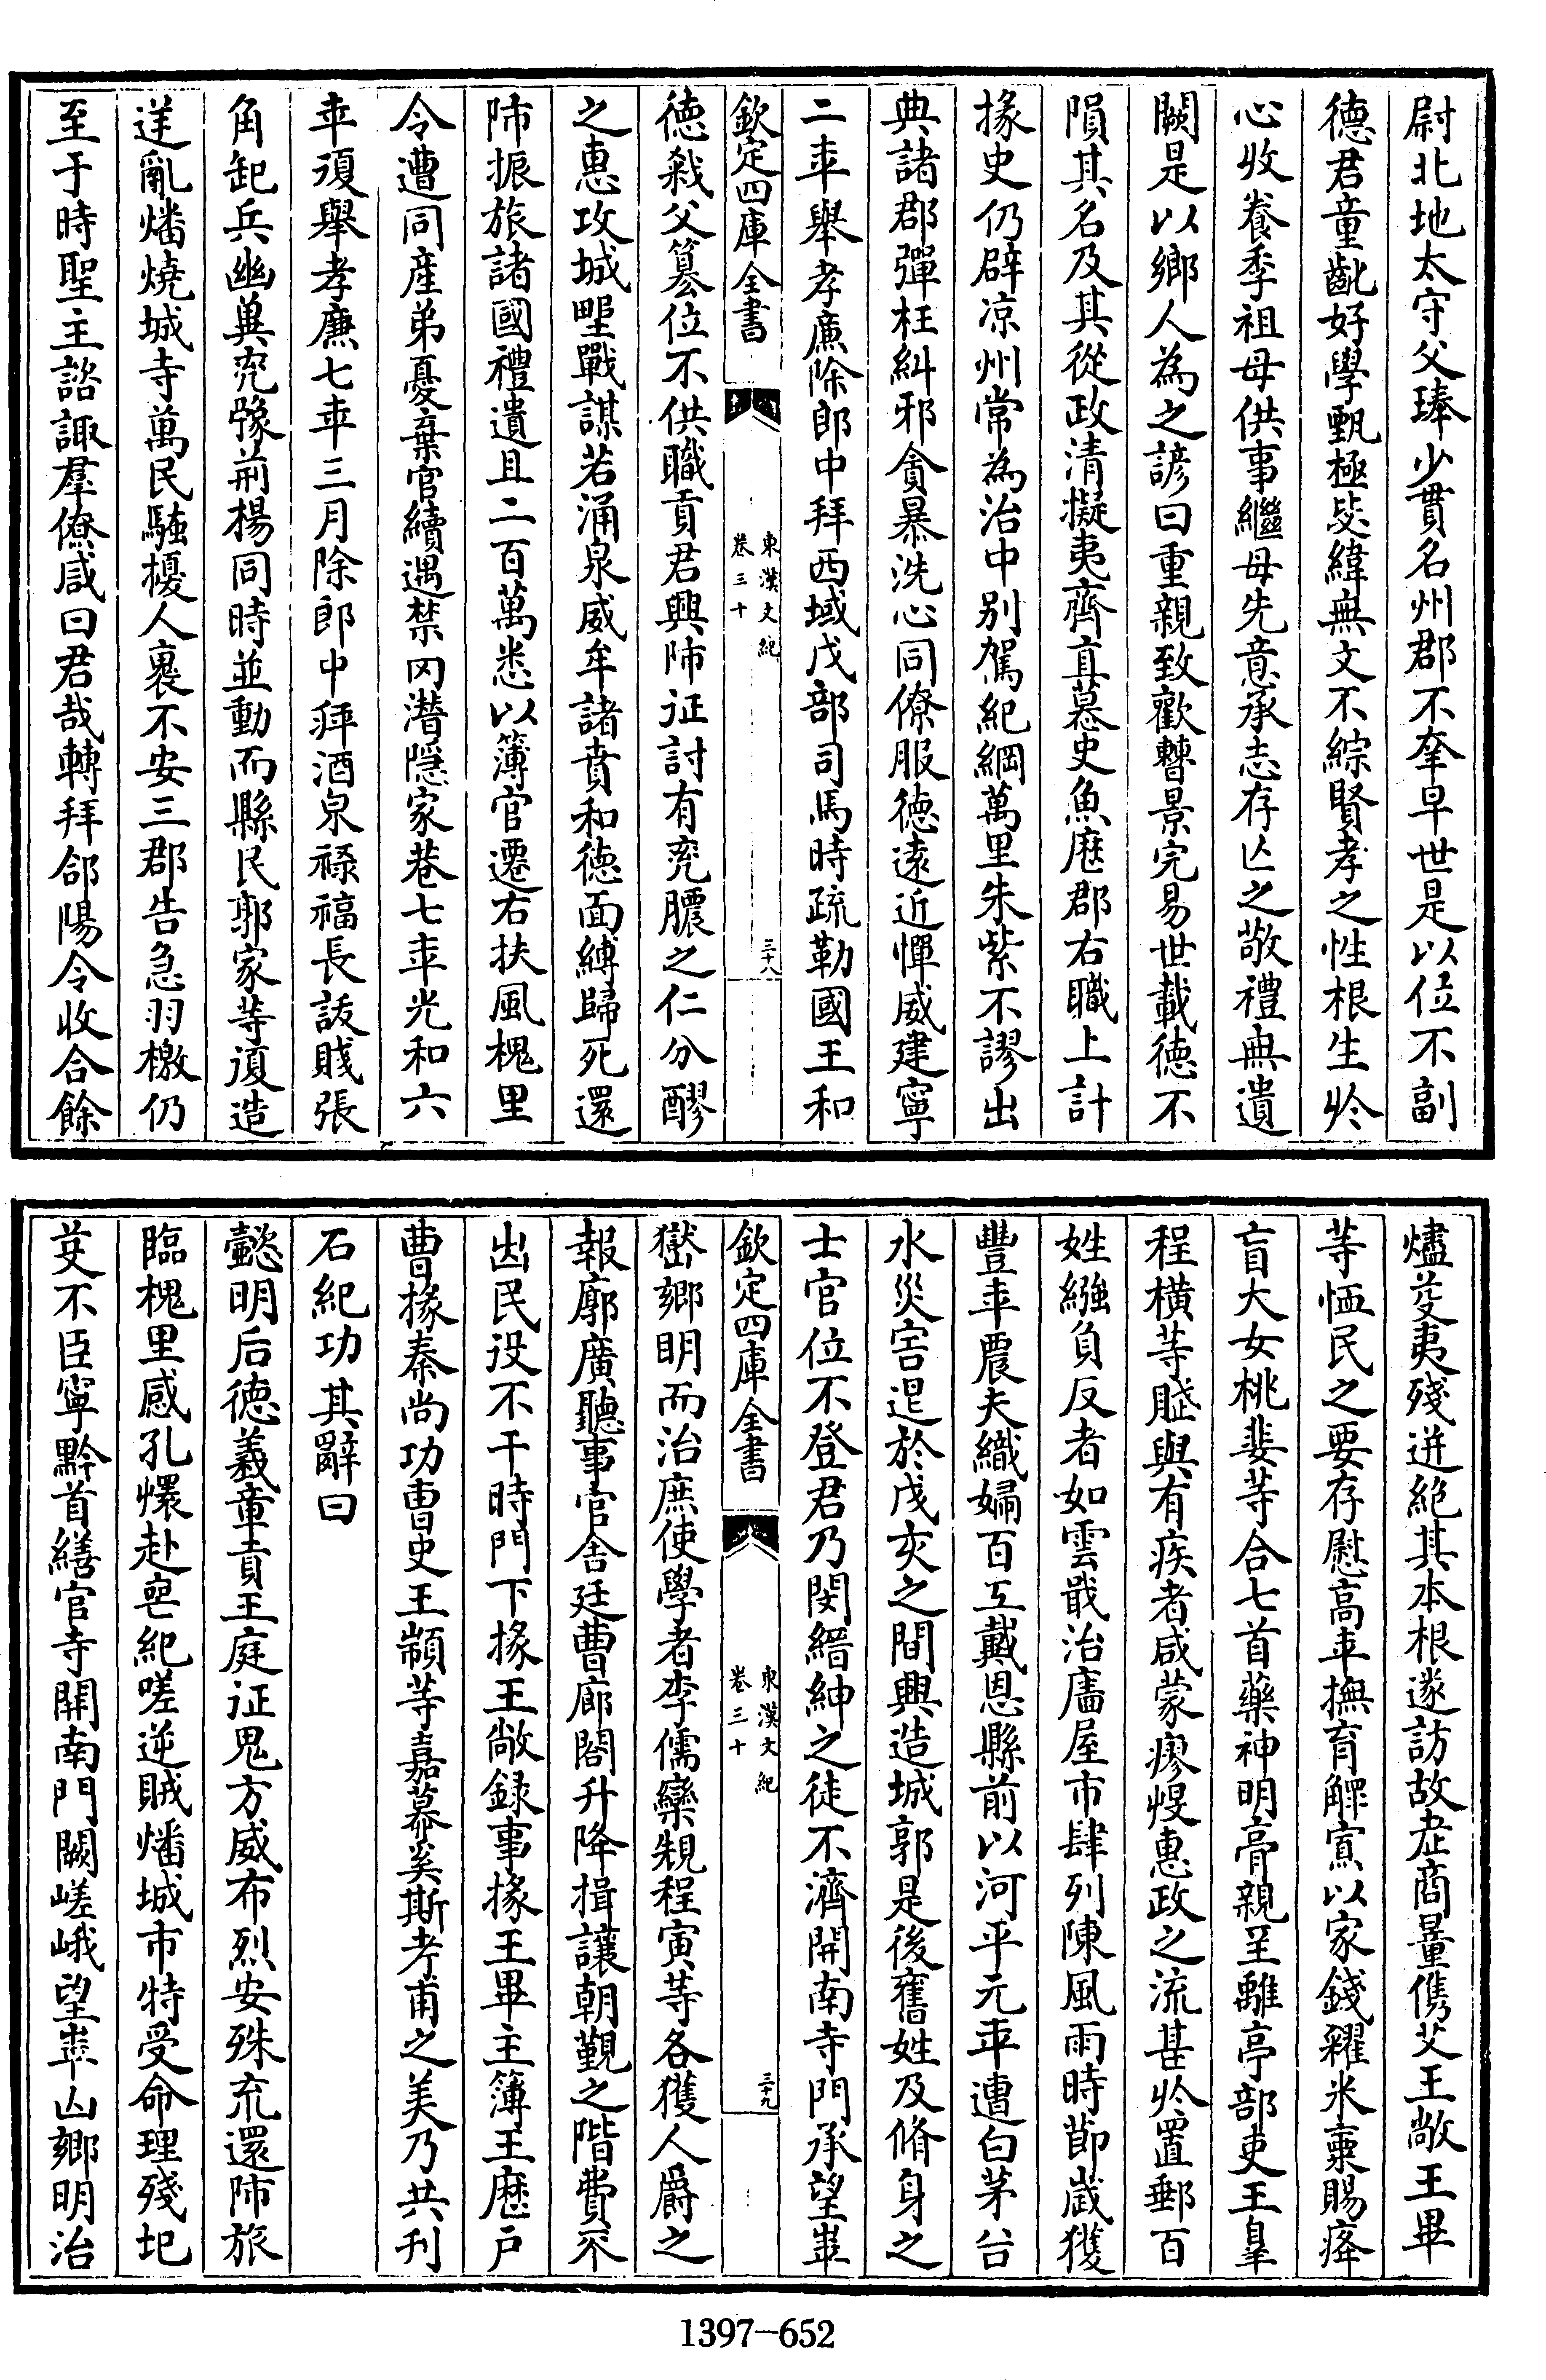 尉北地太守父琫少貫名州郡不夆早世是以位不副
德君童齔好學甄極毖緯無文不綜賢孝之性根生於
心收養季祖母供事繼母先意承志存亡之敬禮無遺
闕是以鄉人為之諺曰重親致歡曹景完易世載德不
隕其名及其從政清擬夷齊直慕史魚歷郡右職上計
掾史仍辟凉州常為治中別駕紀綱萬里朱紫不謬出
典諸郡彈枉糾邪貪暴洗心同僚服德遠近憚威建寧
二秊舉孝廉除郎中拜西域戊部司馬時疏勒國王和
欽定四庫全書
東漢文紀
卷三十
三十八
德弒父簒位不供職貢君興師征討有兖膿之仁分醪
之惠攻城野戰謀若涌泉威牟諸賁和德面縛歸死還
師振旅諸國禮遺且二百萬悉以簿官遷右扶風槐里
令遭同産弟憂棄官續遇禁冈潛隱家巷七秊光和六
秊復舉孝廉七秊三月除郎中拜酒泉祿福長訞賊張
角起兵幽冀兖豫荊楊同時並動而縣民郭家等復造
逆亂燔燒城寺萬民騷擾人裹不安三郡告急羽檄仍
至于時聖主諮諏羣僚咸曰君哉轉拜郃陽令收合餘
燼芟夷殘迸絶其本根遂訪故老商量儁艾王敞王畢
等恤民之要存慰高秊撫育鰥寡以家錢糴米粟賜癃
盲大女桃婓等合七首藥神明膏親至離亭部吏王皐
程横等賦與有疾者咸蒙瘳悛惠政之流甚於置郵百
姓繈負反者如雲戢治廧屋市肆列陳風雨時節歲獲
豐秊農夫織婦百工戴恩縣前以河平元秊遭白茅谷
水災害退於戊亥之間興造城郭是後舊姓及脩身之
士官位不登君乃閔縉紳之徒不濟開南寺門承望華
欽定四庫全書
東漢文紀
卷三十
三十九
嶽鄉明而治庶使學者李儒欒規程寅等各獲人爵之
報廓廣聽事官舍廷曹廊閤升降揖讓朝覲之階費不
出民役不干時門下掾王敞録事掾王畢主簿王歷戶
曹掾秦尚功曹史王顓等嘉慕奚斯考甫之美乃共刋
石紀功其辭曰
懿明后德義章貢王庭征鬼方威布烈安殊㐬還師旅
臨槐里感孔懷赴䘮紀嗟逆賊燔城市特受命理殘圯
芟不臣寧黔首繕官寺開南門闕嵯峨望華山鄉明治